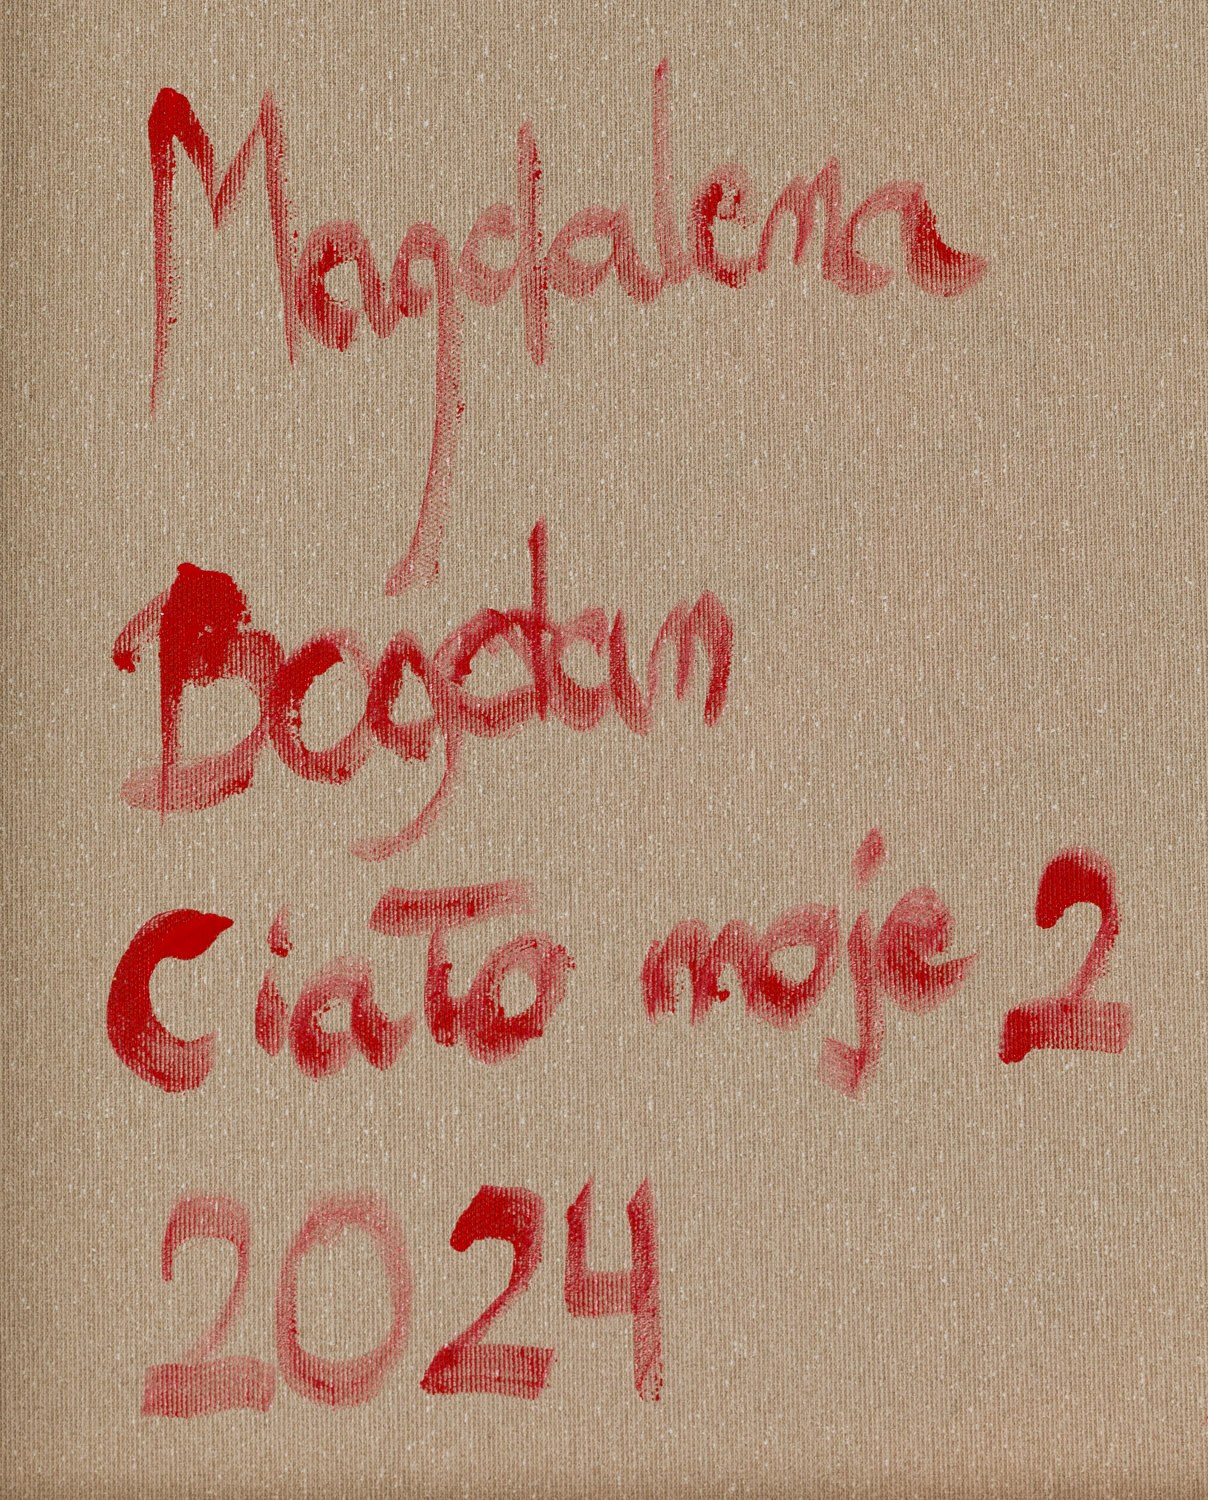 Magdalena
Bogdan
Ciało moje 2
2024